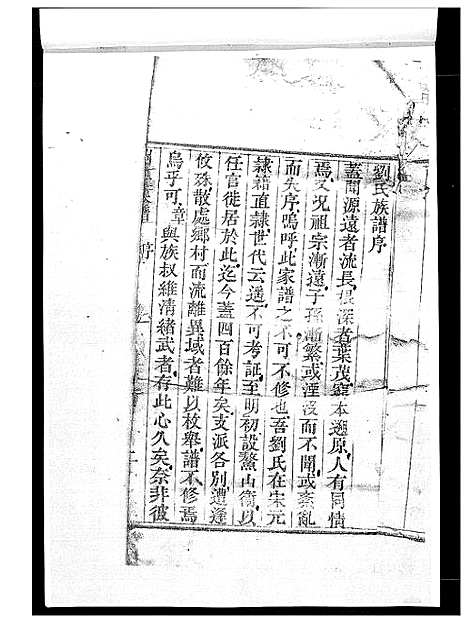 劉氏族譜序
蓋聞源遠者流長根深者葉茂窮本遡原人有同情
焉又況祖宗漸遠子孫漸繁或湮沒而不聞或紊亂
而失序嗚呼此家譜之不可不修也吾劉氏在宋元
隸藉直隸世代云遙不可考証至明初設鰲山衛以
任官徙居於此迄今蓋四百餘年矣支派各別遭逢
攸殊散處鄉村而流離異域者難以枚舉譜不修焉
烏乎可章與族叔維清緒武者存此心久矣奈非彼
族譜 序